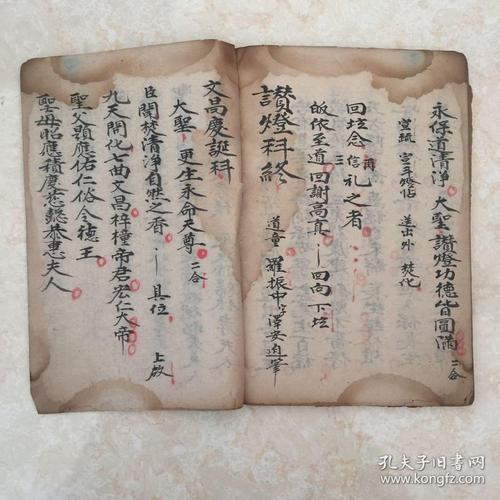 永保道清淨 大聖讚燈功德皆圓滿 二合
宣疏 宣手燈帖 送出外 焚化
回坛念 再三信礼之者
皈依至道 回謝高真 回向 下坛
讚燈科終 道童 羅振中字澤安肉筆
文昌慶誕科
大聖 更生永命天尊 二合
臣聞焚清淨自然之香 具位 上啟
九天開化七曲文昌梓橦帝君宏仁大帝
聖父顯應佑仁俗令德王
聖母昭應積慶慈懿恭惠夫人
孔夫子旧书网
www.kongfz.com